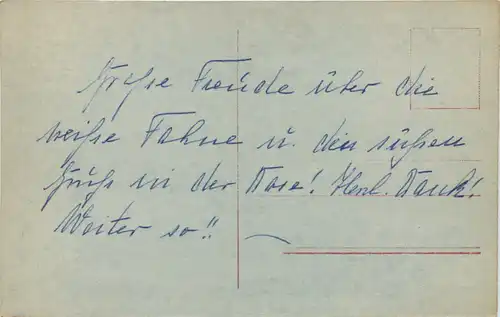 Große Freude über die
weiße Fahne u. den süßen
Gruß in der Dose! Herl. Dank!
Weiter so!!